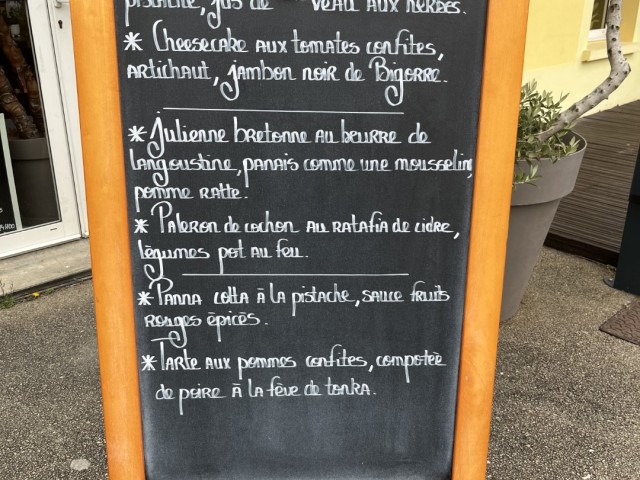 pistache, jus de veau aux herbes.
* Cheesecake aux tomates confites,
artichaut, jambon noir de Bigorre.
* Julienne bretonne au beurre de
langoustine, panais comme une mousselin
pomme ratte.
* Paleron de cochon au ratafia de cidre,
légumes pot au feu.
* Panna cotta à la pistache, sauce fruits
rouges épicés.
* Tarte aux pommes confites, compotée
de poire à la fève de tonka.